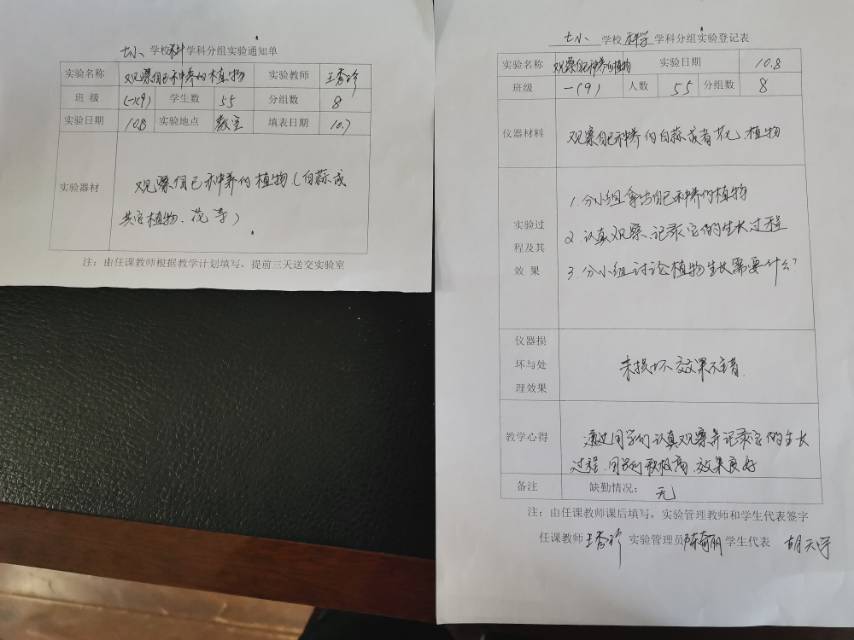 七小 学校 科 学科分组实验通知单
实验名称 观察自己种养的植物 实验教师 王香珍
班 级 一(9) 学生数 55 分组数 8
实验日期 10.8 实验地点 教室 填表日期 10.7
实验器材
观察自己种养的植物(白蒜或
其它植物、花等)
注:由任课教师根据教学计划填写,提前三天送交实验室
七小 学校 科学 学科分组实验登记表
实验名称 观察自己种养的植物 实验日期 10.8
班级 一(9) 人数 55 分组数 8
仪器材料 观察自己种养的白蒜或者其它植物
实验过
程及其
效 果
1.分小组拿出自己种养的植物
2.认真观察、记录它的生长过程
3.分小组讨论植物生长需要什么?
仪器损
坏与处
理效果
未损坏 效果
教学心得
通过同学们认真观察并记录它的生长
过程,同学们 高,效果良好
备注 缺勤情况: 无
注:由任课教师课后填写,实验管理教师和学生代表签字
任课教师 王香珍 实验管理员 学生代表 胡天宇